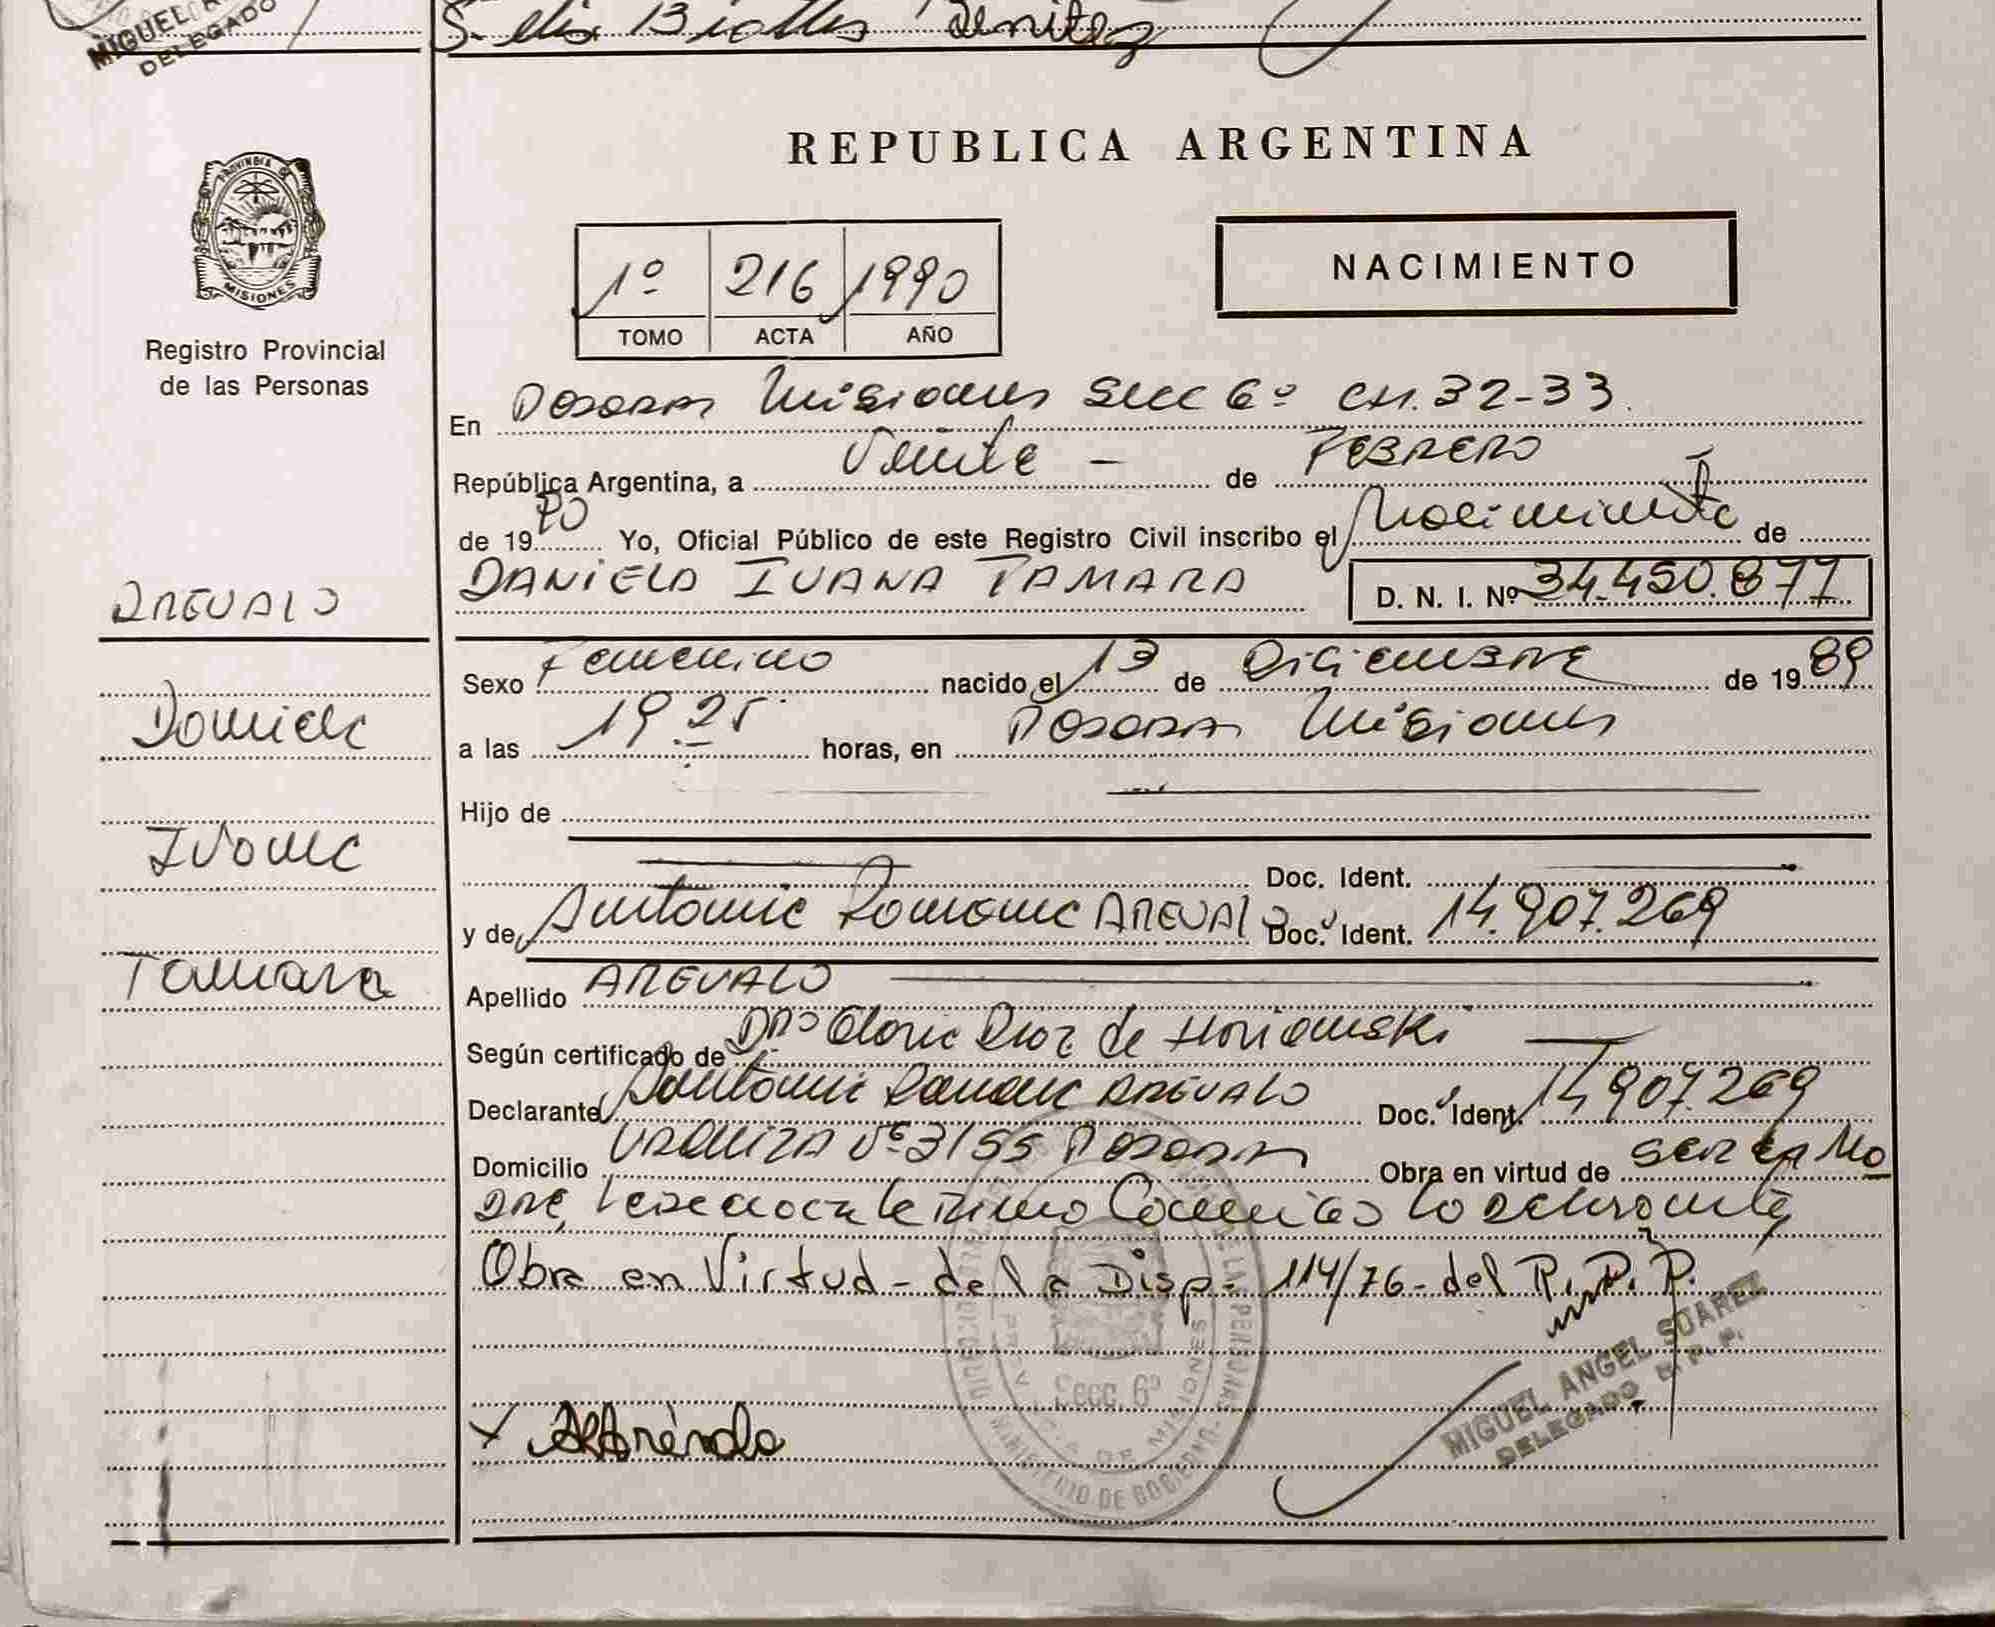 MIGUEL
DELEGADO
Benitez
REPUBLICA ARGENTINA
PROVINCIA DE
MISIONES
Registro Provincial
de las Personas
1º 216 1990
TOMO ACTA AÑO
NACIMIENTO
En Posadas Misiones Secc 6º CH. 32-33
República Argentina, a Veinte - de FEBRERO
de 1990 Yo, Oficial Público de este Registro Civil inscribo el Nacimiento de
DANIELA IVANA TAMARA D. N. I. Nº 34.450.877
AREVALO
Sexo Femenino nacido el 13 de Diciembre de 1989
Daniela
a las 19 25 horas, en Posadas Misiones
Hijo de
Ivana
Doc. Ident.
y de Antonia Romona AREVALO Doc. Ident. 14.907.269
Tamara
Apellido AREVALO
Según certificado de Dra Gloria Diaz de
Declarante Antonia Ramona AREVALO Doc. Ident. 14.907.269
Domicilio URQUIZA Nº 3155 Posadas Obra en virtud de ser la Ma
dre, la declarante
Obra en Virtud - de la Disp. 114/76 - del R.P.P.
MIGUEL ANGEL SUAREZ
DELEGADO R. P. P.
Secc. 6º
PROVINCIA DE MISIONES
MINISTERIO DE GOBIERNO